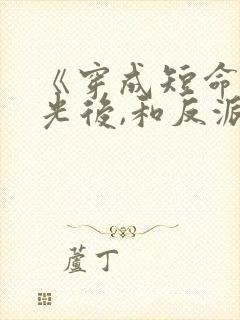 《穿成短命
光後,和反派
蘆丁